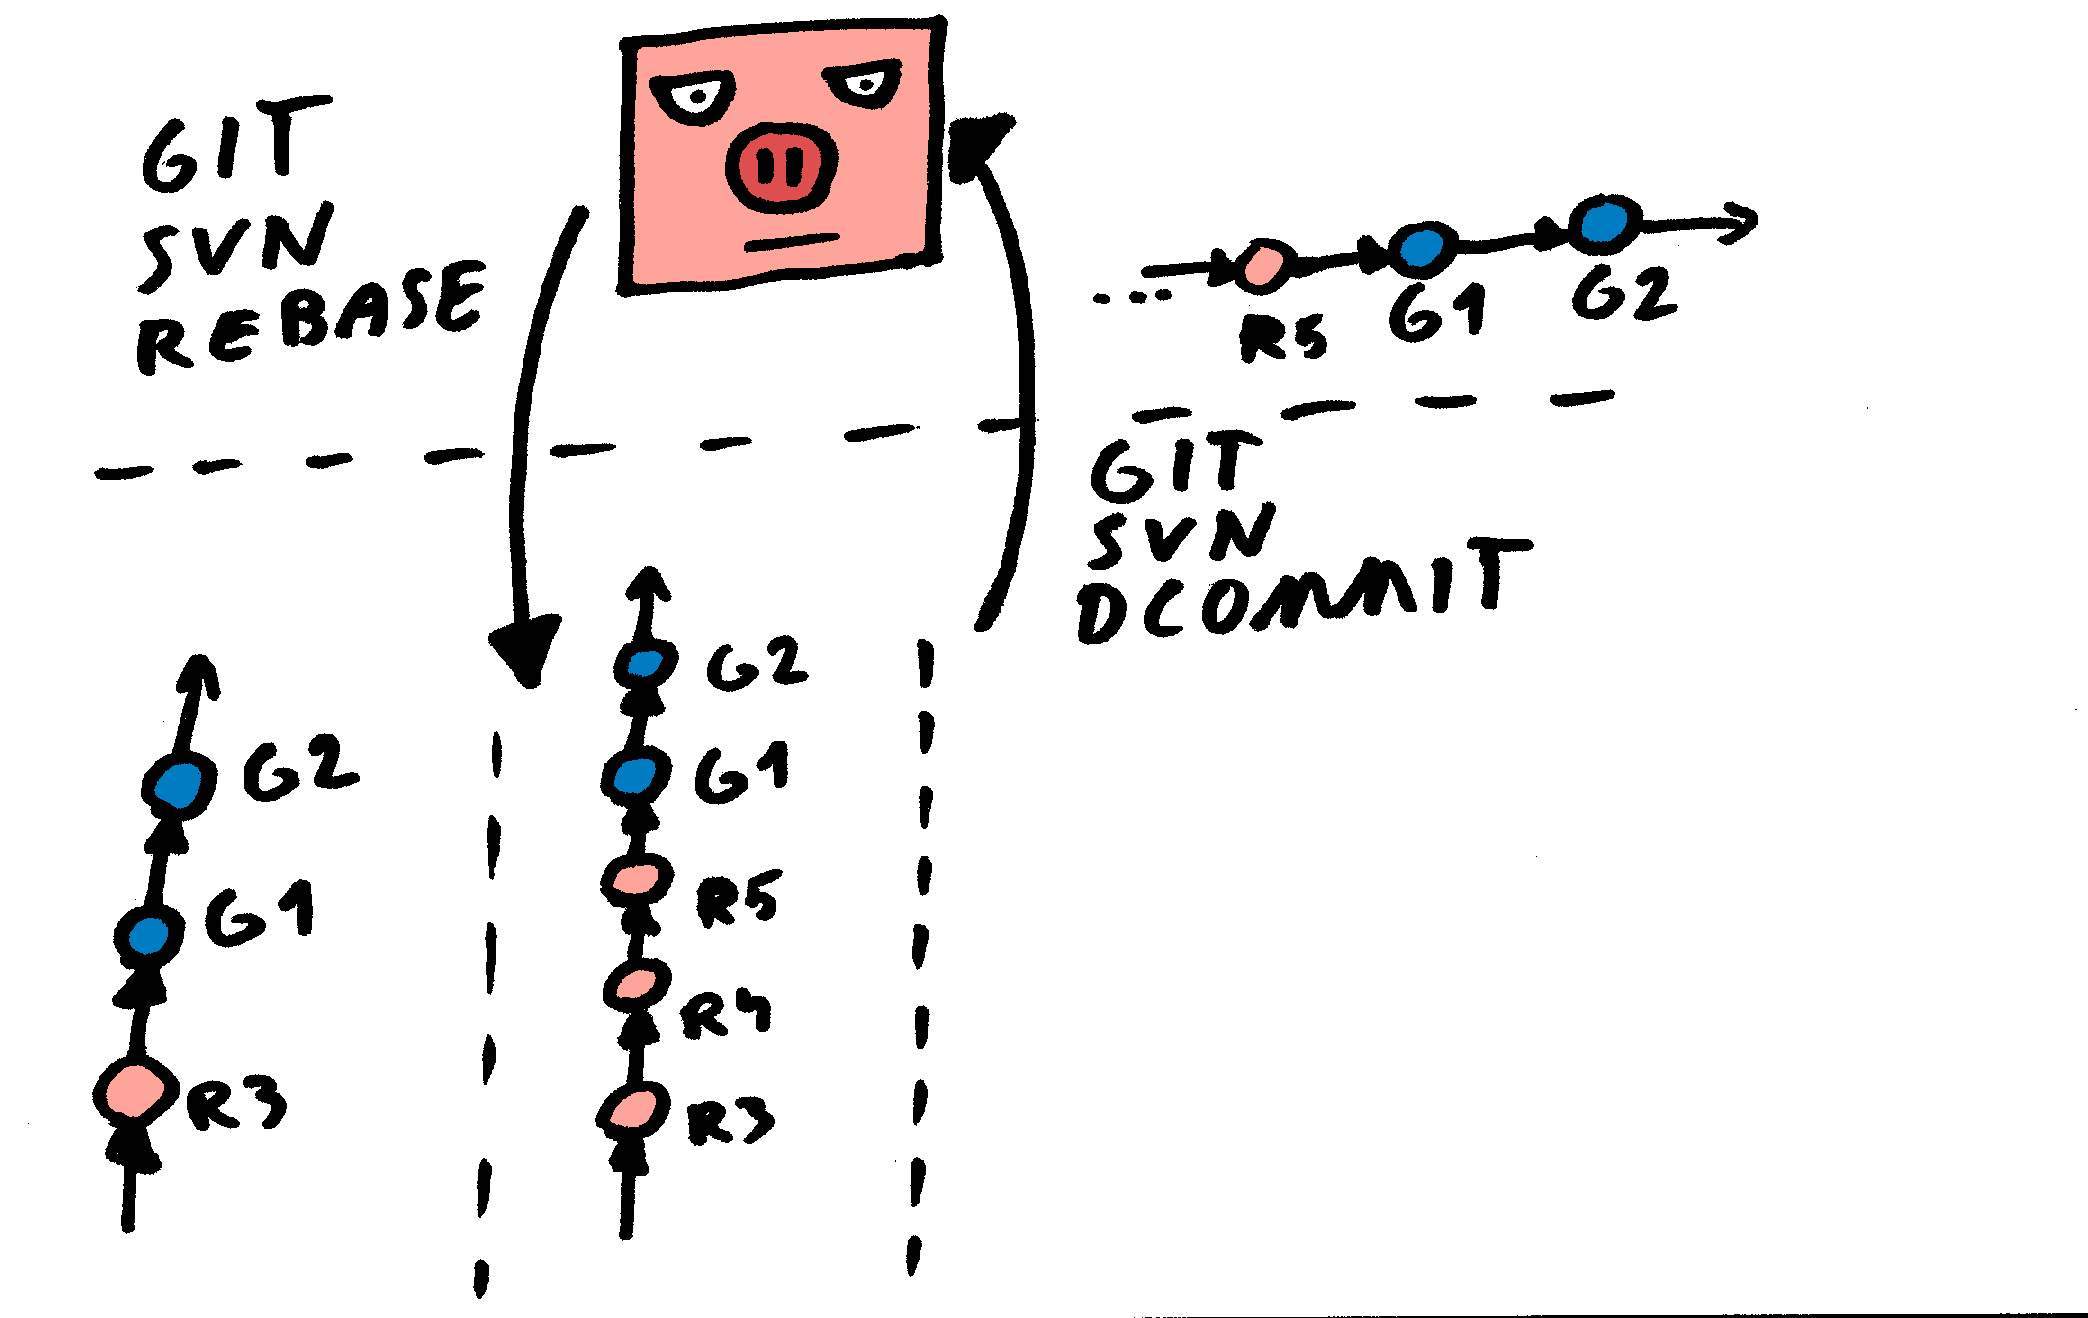 GIT
SVN
REBASE
R5 G1 G2
GIT
SVN
DCOMMIT
G2
G1
R3
G2
G1
R5
R4
R3